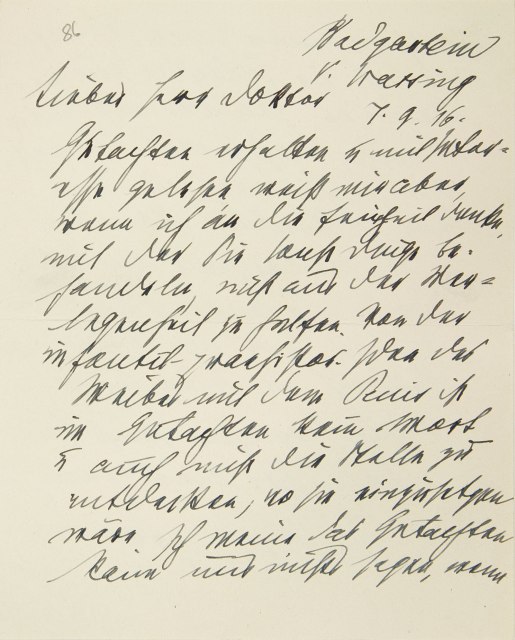 86
Badgastein
V. Wassing
Lieber Herr Doktor
7. 9. 16.
Gutachten erhalten u mit Inter-
esse gelesen weiß mir aber,
wenn ich an die Feinheit denke,
mit der Sie sonst Dinge be-
handeln, nicht aus der Ver-
legenheit zu helfen. Von der
infantil-praehistor. Idee des
Weibes mit dem Penis ist
im Gutachten kein Wort
u auch nicht die Stelle zu
entdecken, wo sie einzusetzen
wäre Ich meine das Gutachten
kann uns nichts sagen, wenn